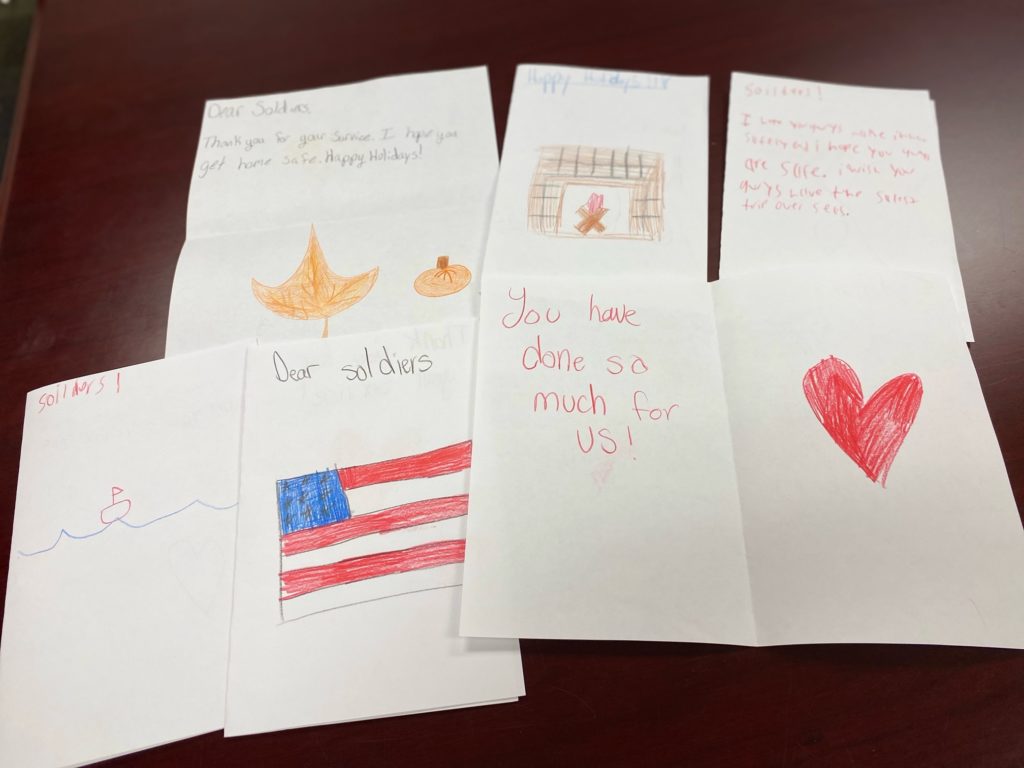 Dear Soldiers,
Thank you for your service. I hope you
get home safe. Happy Holidays!
Happy Holidays!!!
Soilders!
I hope you guys make it
safely and i hope you guys
are safe. i wish you
guys have the safest
trip over seas.
soliders!
Dear soldiers
You have
done so
much for
us!